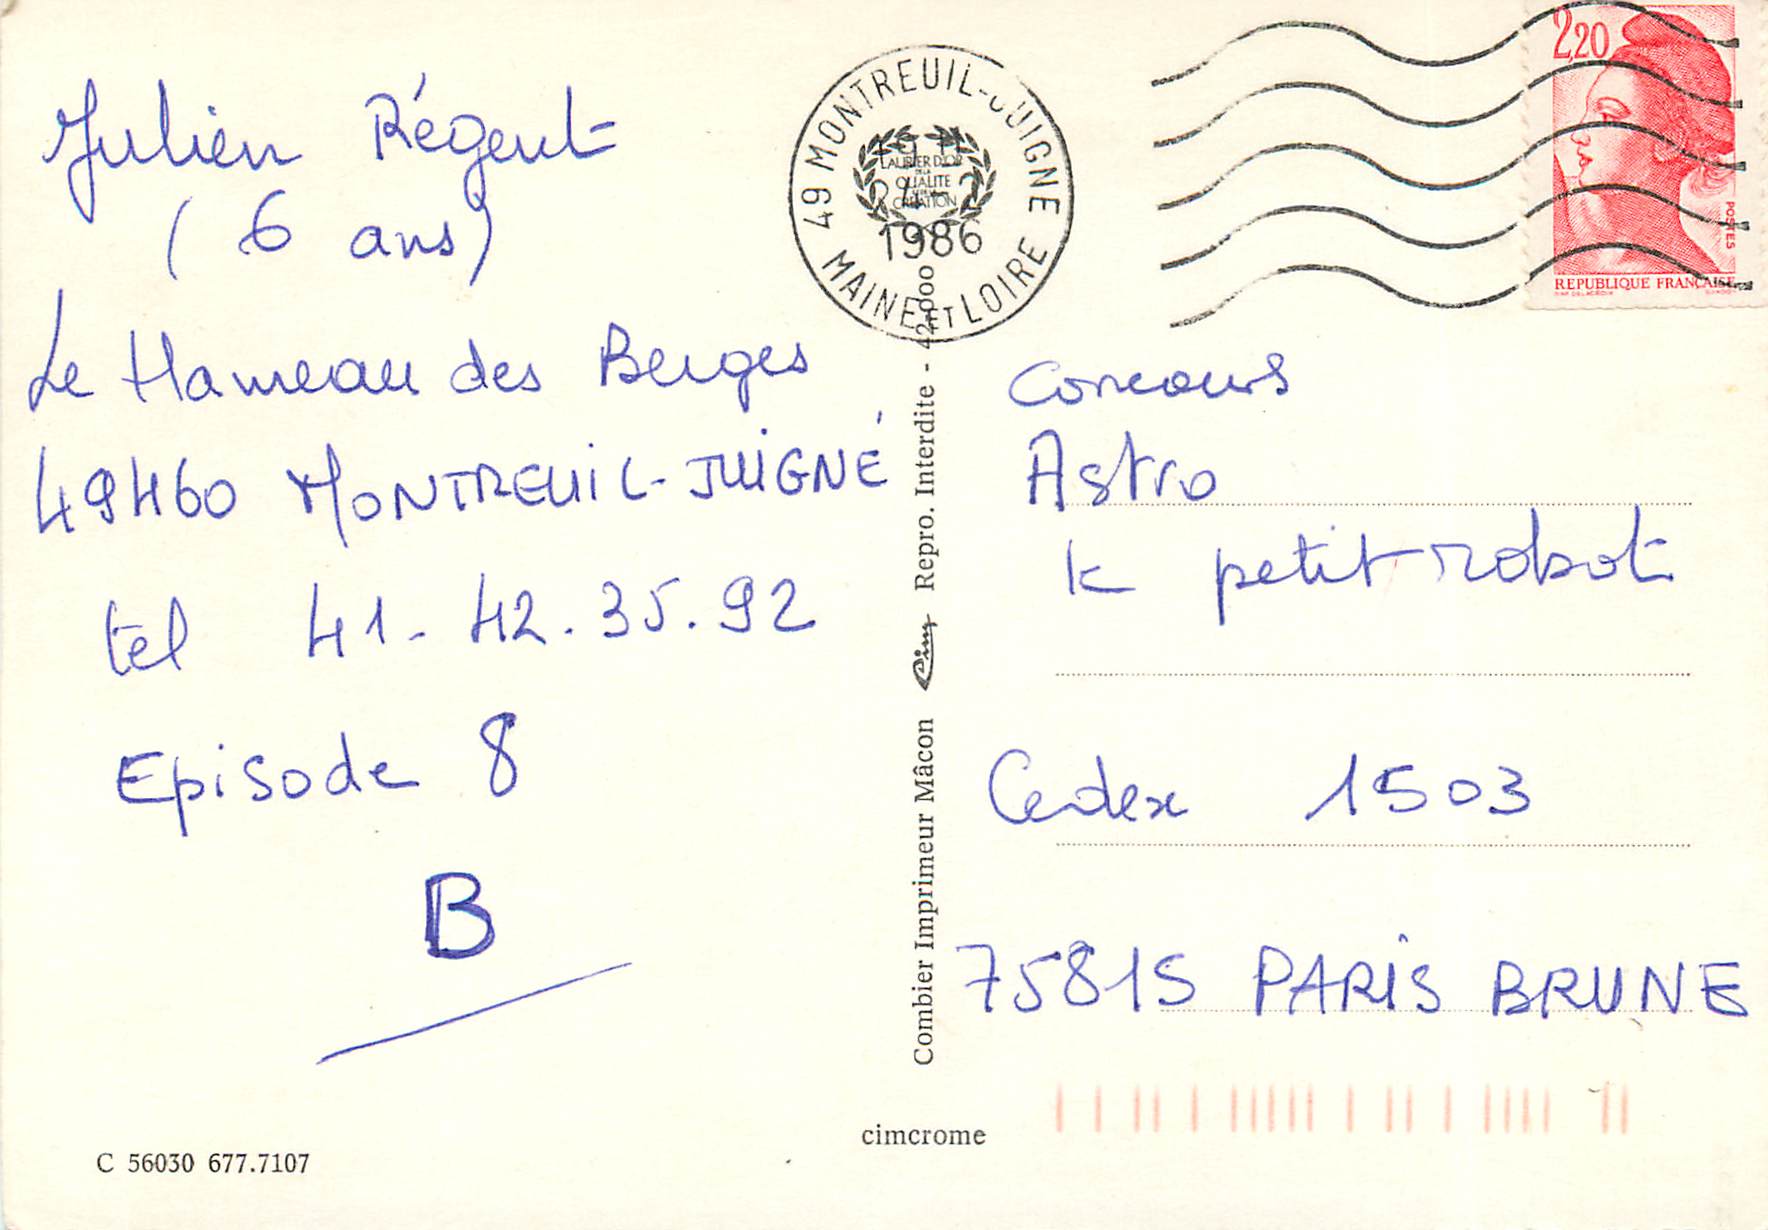 Julien Régent
( 6 ans)
Le Hameau des Berges
49460 MONTREUIL-JUIGNÉ
tel 41-42.35.92
Episode 8
B
C 56030 677.7107
49 MONTREUIL-JUIGNE
MAINE ET LOIRE
LAURIER D'OR
DE LA
QUALITE
CREATION
1986
2,20
POSTES
REPUBLIQUE FRANÇAISE
Combier Imprimeur Mâcon Cim Repro. Interdite - 42-000
cimcrome
Concours
Astro
le petit robot
Cedex 1503
75815 PARIS BRUNE